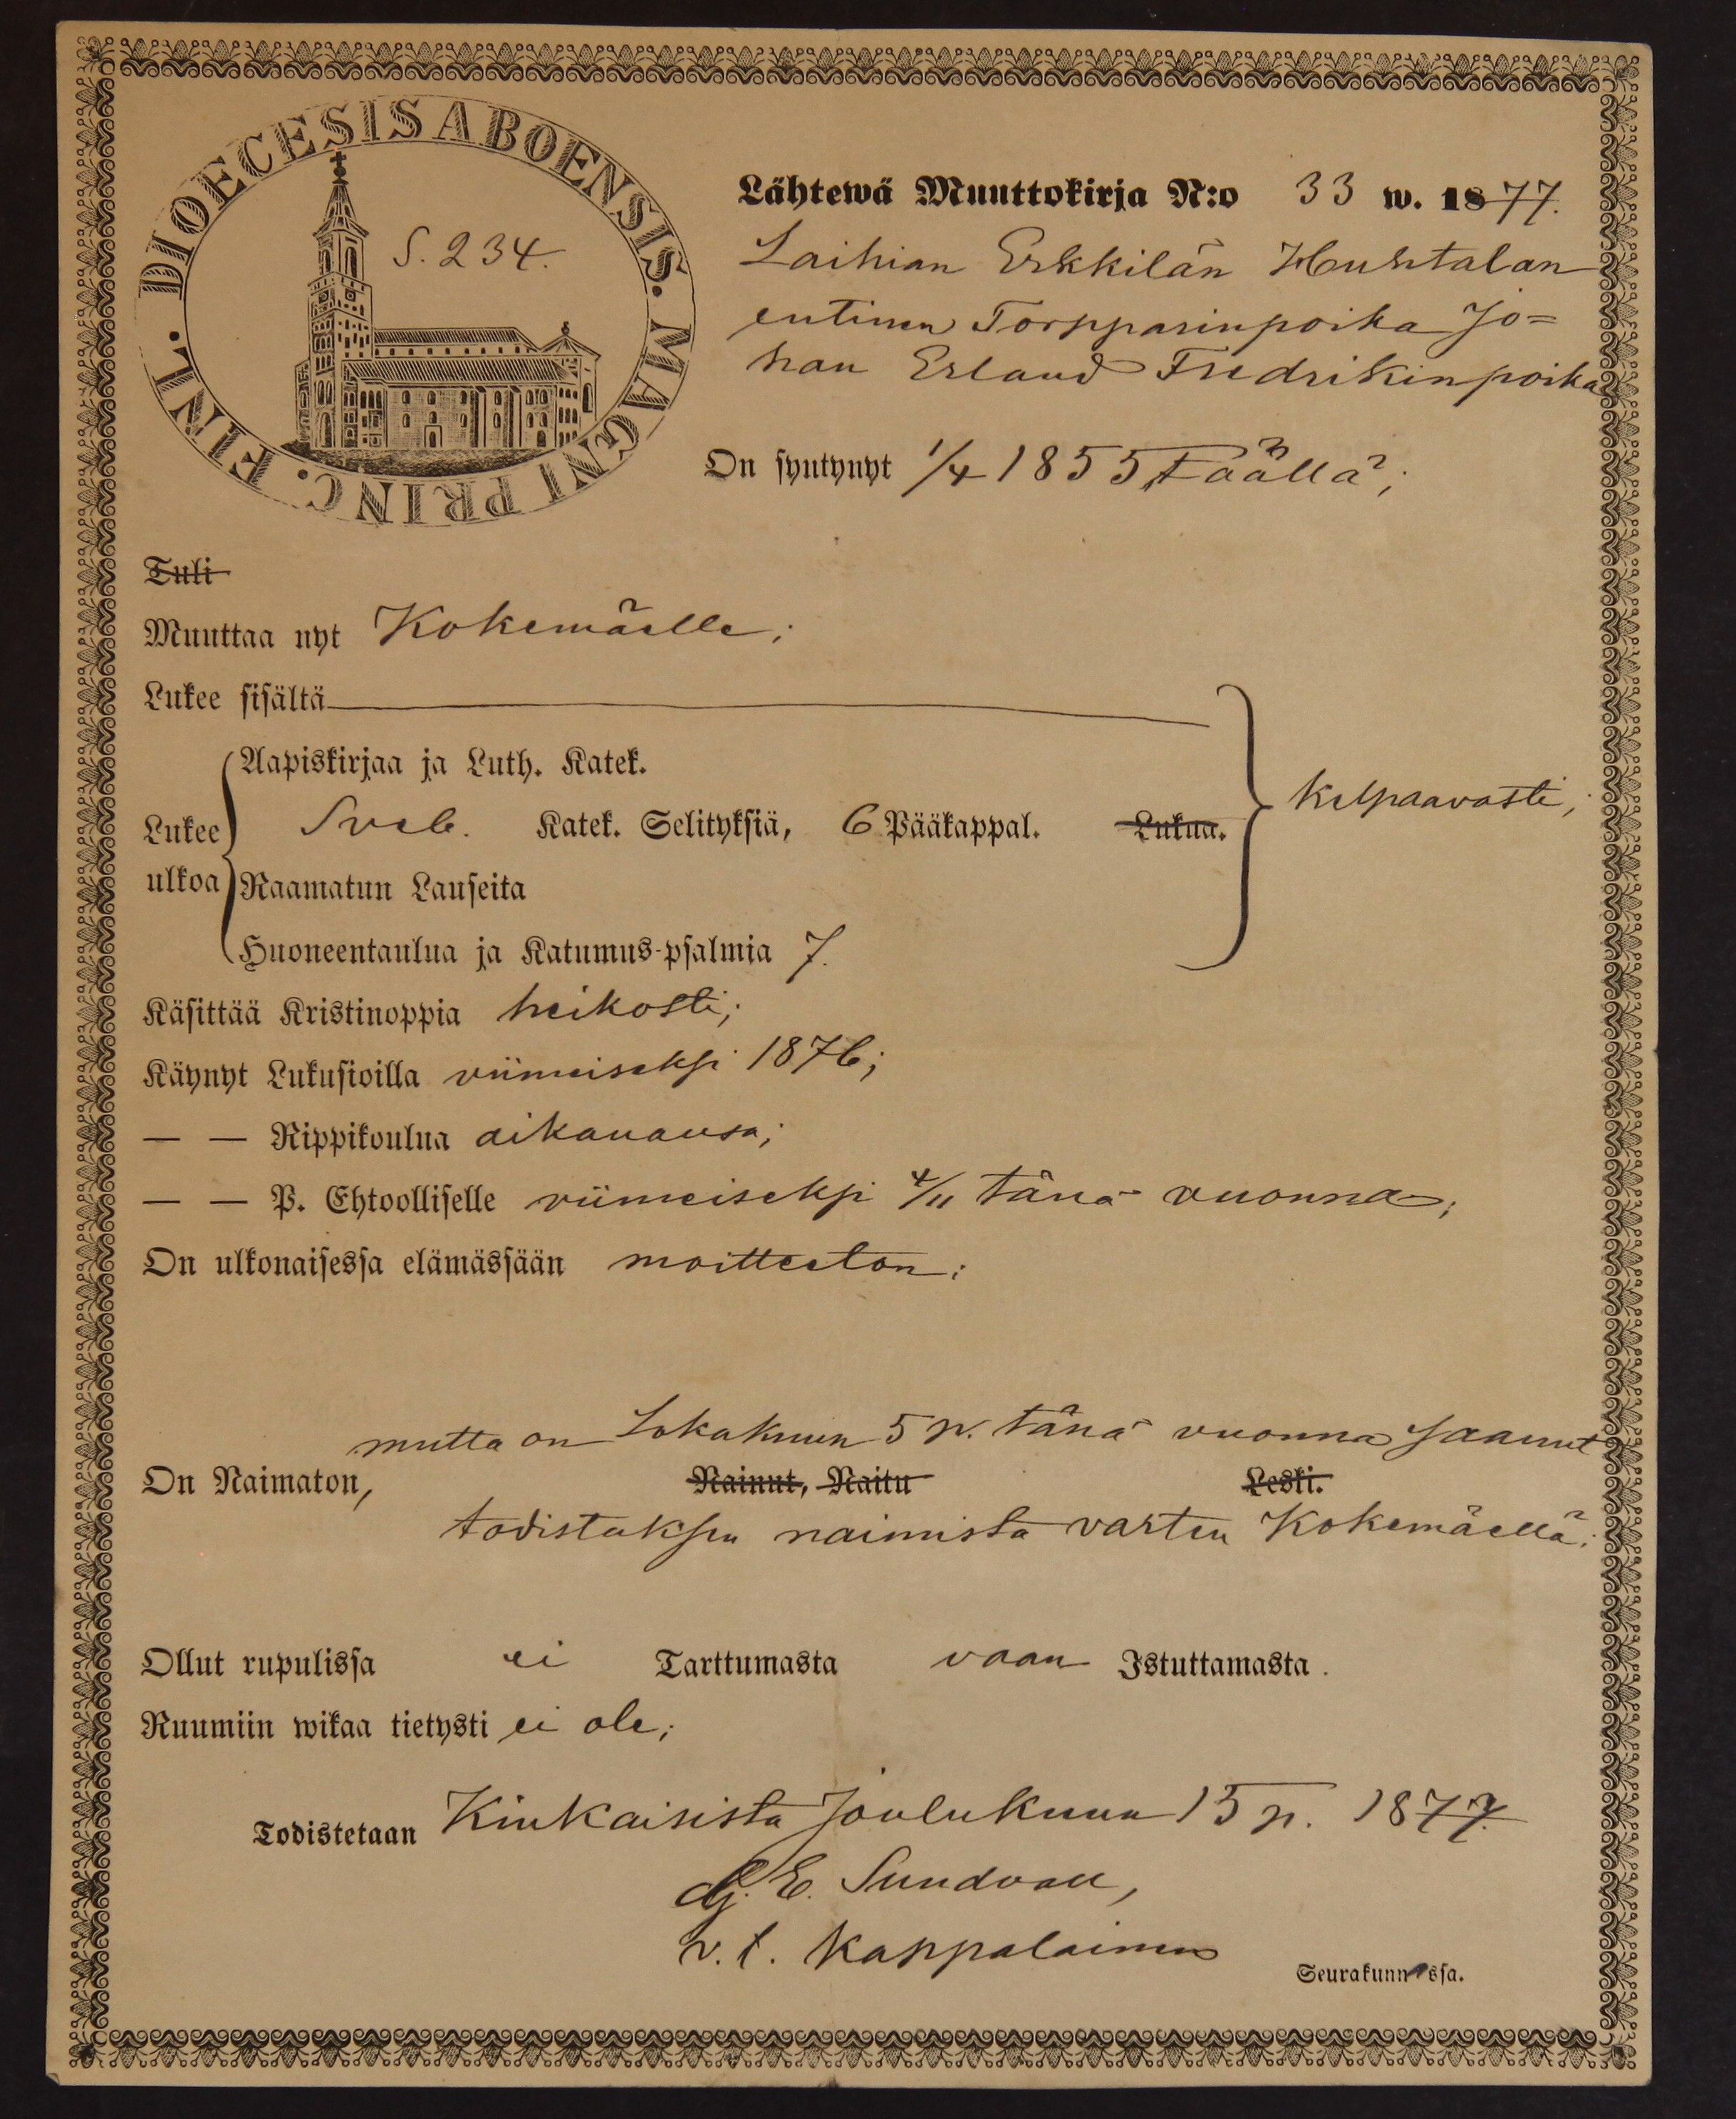 DIOECESIS ABOENSIS. MAGNI PRINC. FINL.
S. 234.
Lähtewä Muuttokirja N:o 33 w. 1877.
Laihian Erkkilän Huhtalan
entinen Torpparinpoika Jo=
han Erland Fredrikinpoika
On syntynyt 1/4 1855 täällä;
Tuli
Muuttaa nyt Kokemäelle;
Lukee sisältä
Aapiskirjaa ja Luth. Katek.
Lukee Sveb. Katek. Selityksiä, 6 Pääkappal. Lukua. Kelpaavasti;
ulkoa Raamatun Lauseita
Huoneentaulua ja Katumus-psalmia 7.
Käsittää Kristinoppia heikosti;
Käynyt Lukusioilla viimeiseksi 1876;
— — Rippikoulua aikanansa;
— — P. Ehtoolliselle viimeiseksi 4/11 tänä vuonna;
On ulkonaisessa elämässään moitteeton;
mutta on Lokakuun 5 p. tänä vuonna saanut
On Naimaton, Nainut, Naitu Leski.
todistuksen naimista varten Kokemäellä;
Ollut rupulissa ei Tarttumasta vaan Istuttamasta.
Ruumiin wikaa tietysti ei ole;
Todistetaan Kiukaisista Joulukuun 15 p. 1877.
E. Sundvall,
v. t. Kappalainen
Seurakunnassa.